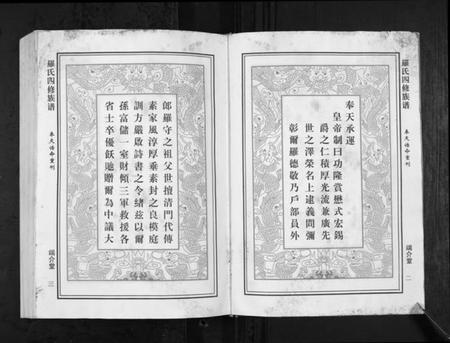 羅氏四修族谱
奉天誥命重刊
奉天承運
皇帝制曰功隆賞懋式宏錫
爵之仁積厚光流兼廣先
世之澤榮名上逮義問彌
彰爾羅德敬乃戶部員外
端介堂
二
羅氏四修族谱
奉天誥命重刊
郎羅守之祖父世擅清門代傳
素家風淳厚垂素封之良模庭
訓方嚴啟詩書之令緒茲以爾
孫富儲一室財傾三軍救援各
省士卒優飫馳贈爾為中議大
端介堂
三